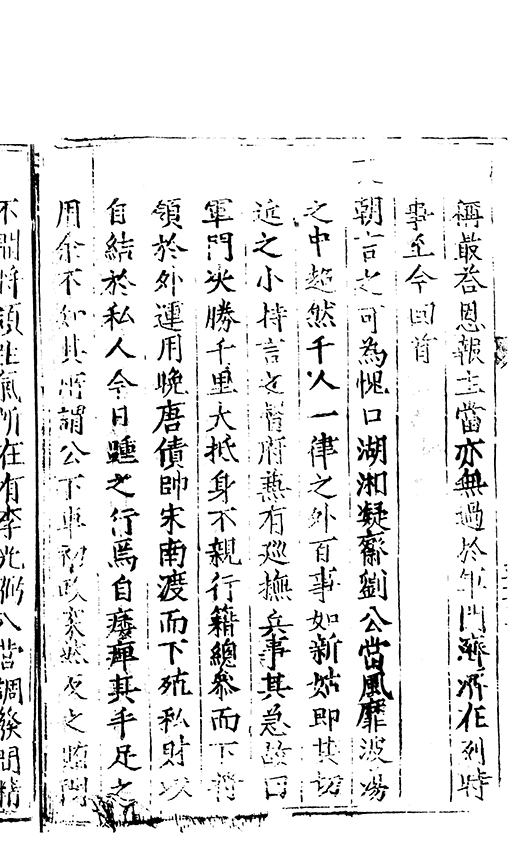 稱最荅恩報主當亦無過於軍門濟濟在列時
事至今回首
朝言之可為愧口湖湘凝齋劉公當風靡波蕩
之中超然千人一律之外百事如新姑即其切
近之小持言之督府兼有巡撫兵事其急故曰
軍門决勝千里大抵身不親行籍總參而下將
領於外運用晚唐債帥宋南渡而下殖私財以
自結於私人今日踵之行焉自癈痺其手足之
用余不知其所謂公下車初政家然反之
不閑將領生氣所在有李光弼入營調發閒精